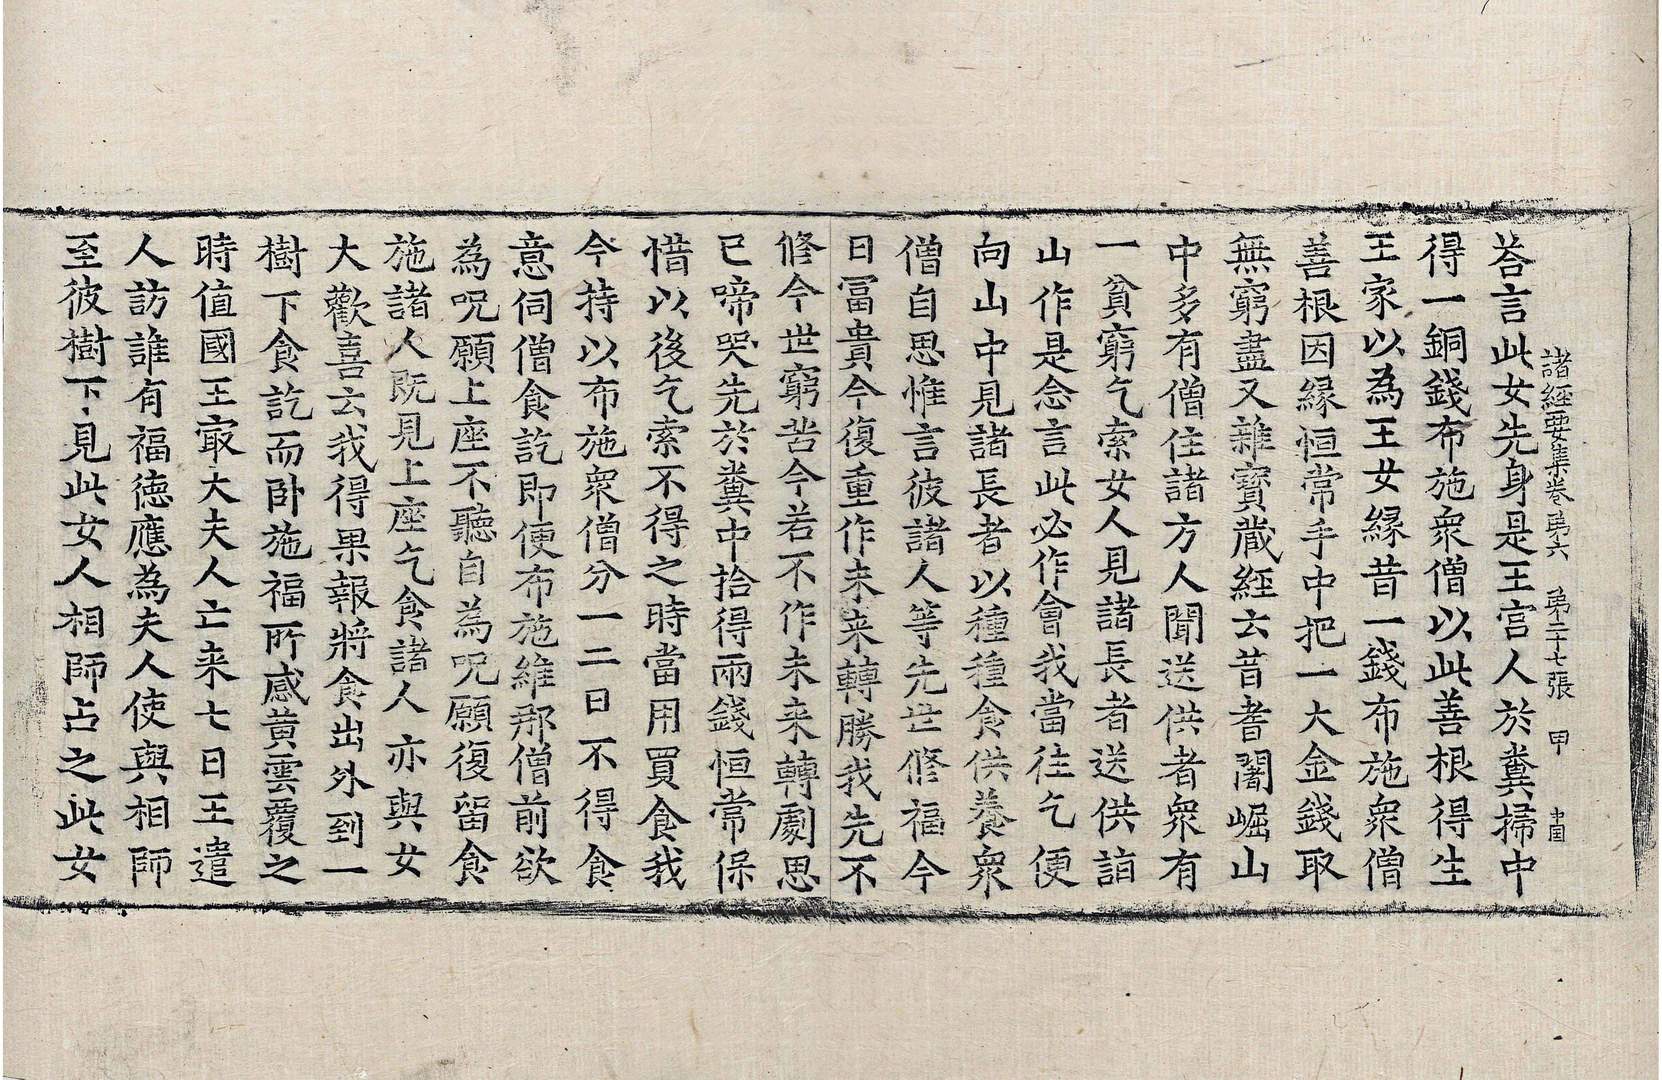 諸經要集卷第六 第二十七張 甲
荅言此女先身是王宮人於糞掃中
得一銅錢布施衆僧以此善根得生
王家以為王女縁昔一錢布施衆僧
善根因縁恒常手中把一大金錢取
無窮盡又雜寶藏經云昔耆闍崛山
中多有僧住諸方人聞送供者衆有
一貧窮乞索女人見諸長者送供詣
山作是念言此必作會我當往乞便
向山中見諸長者以種種食供養衆
僧自思惟言彼諸人等先世修福今
日冨貴今復重作未来轉勝我先不
修今世窮苦今若不作未来轉劇思
已啼哭先於糞中拾得兩錢恒常保
惜以後乞索不得之時當用買食我
今持以布施衆僧分一二日不得食
意伺僧食訖即便布施維那僧前欲
為呪願上座不聽自為呪願復留食
施諸人既見上座乞食諸人亦與女
大歡喜云我得果報將食出外到一
樹下食訖而卧施福所感黄雲覆之
時值國王㝡大夫人亡来七日王遣
人訪誰有福徳應為夫人使與相師
至彼樹下見此女人相師占之此女